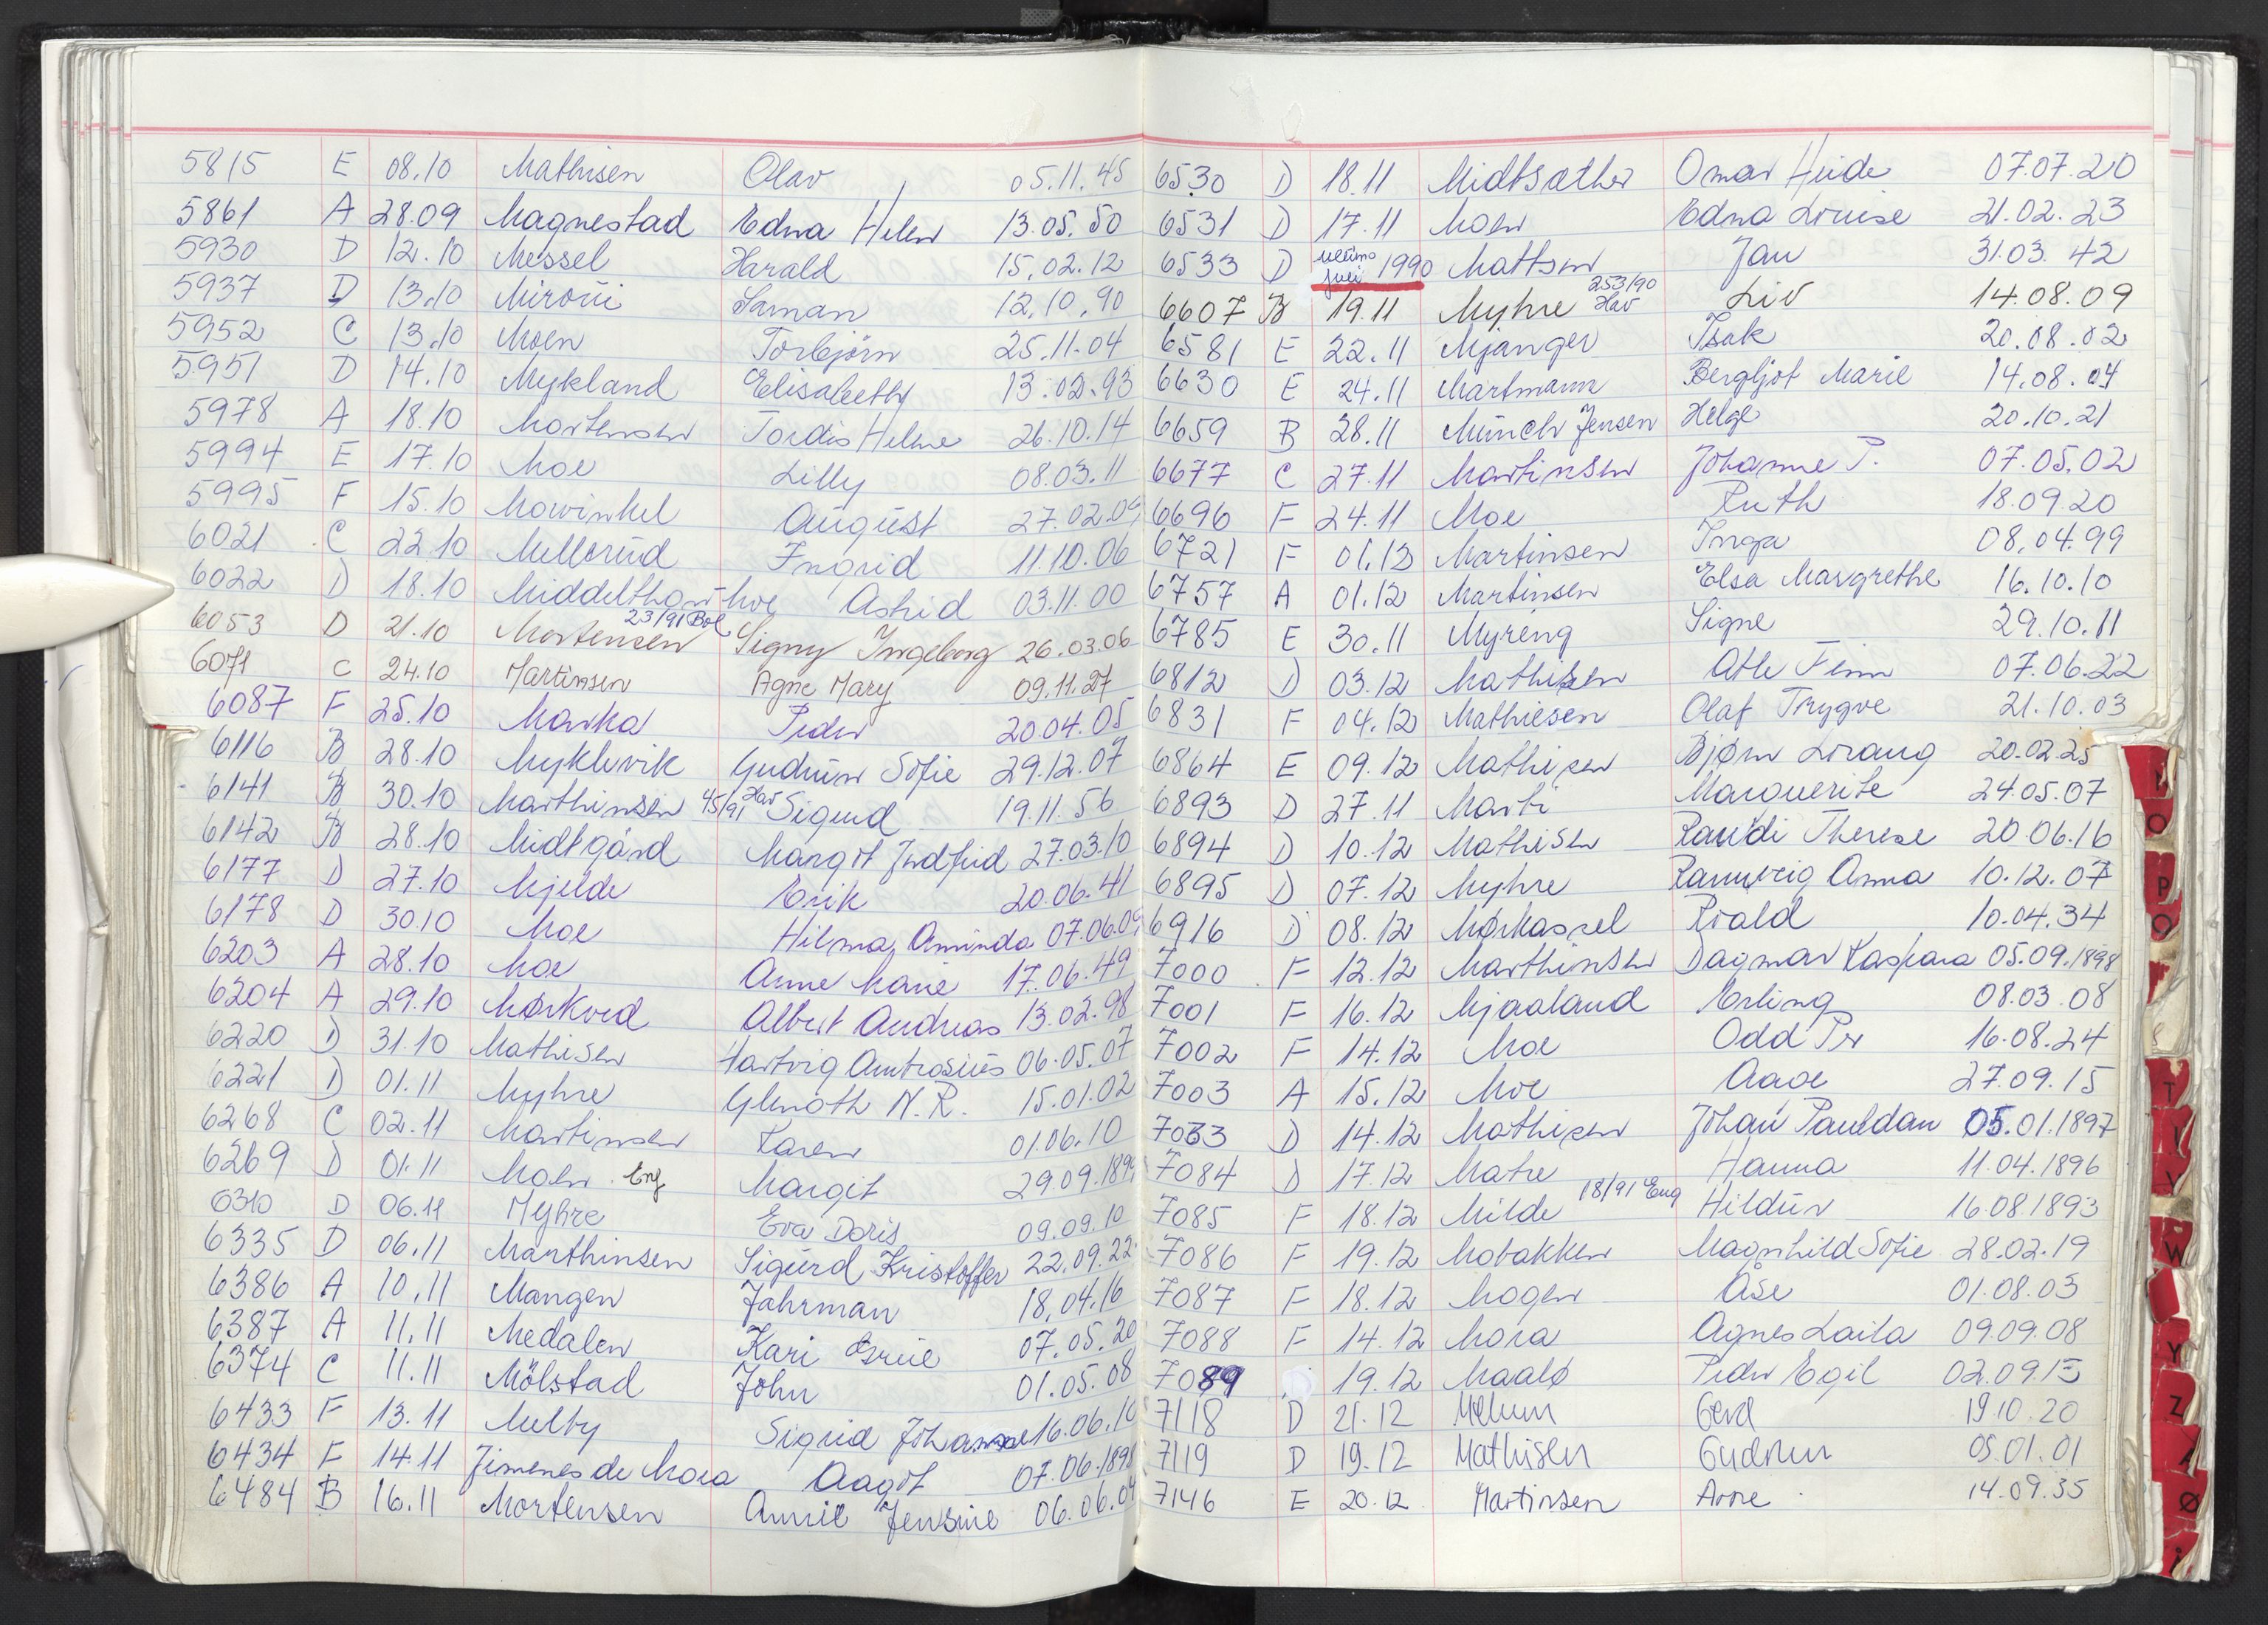 5815 E 08.10 Mathisen Olav 05.11.45
5861 A 28.09 Magnestad Edna Helen 13.05.50
5930 D 12.10 Messel Harald 15.02.12
5937 D 13.10 Miroüi Saman 12.10.90
5952 C 13.10 Moen Torbjörn 25.11.04
5951 D 14.10 Mykland Elisabeth 13.02.93
5978 A 18.10 Mortensen Tordis Helene 26.10.14
5994 E 17.10 Moe Lilly 08.03.11
5995 F 15.10 Mowinkel Aügüst 27.02.09
6021 C 22.10 Mellerüd Ingrid 11.10.06
6022 D 18.10 Middelthon-Moe Astrid 03.11.00
6053 D 21.10 Mortensen 23/91 Bol Signy Ingeborg 26.03.06
6071 C 24.10 Martinsen Agne Mary 09.11.27
6087 F 25.10 Marka Peder 20.04.05
6116 B 28.10 Myklevik Gudrün Sofie 29.12.07
6141 B 30.10 Marthinsen 45/91 Hav Sigurd 19.11.56
6142 B 28.10 Midtgård Margit Indfrid 27.03.10
6177 D 27.10 Mjelde Erik 20.06.41
6178 D 30.10 Moe Hilma Aminda 07.06.09
6203 A 28.10 Moe Anne Marie 17.06.49
6204 A 29.10 Mørkved Albert Andreas 13.02.98
6220 D 31.10 Mathisen Hartvig Ambrosiüs 06.05.07
6221 D 01.11 Myhre Glenoth N.R. 15.01.02
6268 C 02.11 Martinsen Karen 01.06.10
6269 D 01.11 Moen Eng Margit 29.09.189
6310 D 06.11 Myhre Eva Doris 09.09.10
6335 D 06.11 Marthinsen Sigürd Kristoffer 22.09.22
6386 A 10.11 Mangen Jahrman 18.04.16
6387 A 11.11 Medalen Kari 07.05.20
6374 C 11.11 Mölstad John 01.05.08
6433 F 13.11 Melby Sigrid Johanne 16.06.10
6434 F 14.11 Jimenes de Mora Aagot 07.06.1898
6484 B 16.11 Mortensen Annie Jensine 06.06.04
6530 D 18.11 Midtsæther Omar Heide 07.07.20
6531 D 17.11 Moen Edna Louise 21.02.23
6533 D ultimo juli 1990 Mattsen Jan 31.03.42
6607 B 19.11 Myhre 253/90 Hav Liv 14.08.09
6581 E 22.11 Mjånger Isak 20.08.02
6630 E 24.11 Martmann Bergljot Marie 14.08.04
6659 B 28.11 Münch Jensen Helge 20.10.21
6677 C 27.11 Martinsen Johanne P. 07.05.02
6696 F 24.11 Moe Ruth 18.09.20
6721 F 01.12 Martinsen Inga 08.04.99
6757 A 01.12 Martinsen Elsa Margrethe 16.10.10
6785 E 30.11 Myreng Signe 29.10.11
6812 D 03.12 Mathisen Atle Finn 07.06.22
6831 F 04.12 Mathiesen Olaf Trygve 21.10.03
6864 E 09.12 Mathisen Bjørn Lorang 20.02.25
6893 D 27.11 Marti Marguerite 24.05.07
6894 D 10.12 Mathisen Randi Therese 20.06.16
6895 D 07.12 Myhre Rannveig Anna 10.12.07
6916 D 08.12 Mørkassel Roald 10.04.34
7000 F 12.12 Marthinsen Dagmar Kaspara 05.09.1898
7001 F 16.12 Mjaaland Erling 08.03.08
7002 F 14.12 Moe Odd Per 16.08.24
7003 A 15.12 Moe Aage 27.09.15
7033 D 14.12 Mathisen Johan Pauldan 05.01.1897
7084 D 17.12 Matre Hanna 11.04.1896
7085 F 18.12 Milde 18/91 Eng Hildür 16.08.1893
7086 F 19.12 Mobakken Magnhild Sofie 28.02.19
7087 F 18.12 Mogen Åse 01.08.03
7088 F 14.12 Mora Agnes Laila 09.09.08
7089 19.12 Maalø Peder Egil 02.09.15
7118 D 21.12 Melum Gerd 19.10.20
7119 D 19.12 Mathisen Gudrun 05.01.01
7146 E 20.12 Martinsen Arne 14.09.35
N
O
P
Q
S
T
V
W
Y
Z
Ø
Å